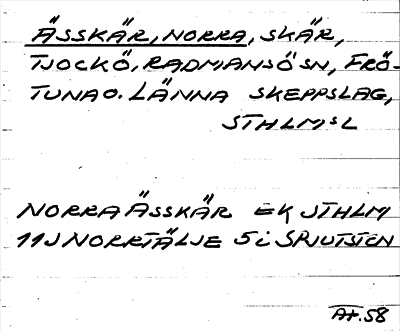 ÄSSKÄR, NORRA, SKÄR,
TJOCKÖ, RADMANSÖ SN, FRÖ-
TUNA O. LÄNNA SKEPPSLAG,
STHLMS L
NORRA ÄSSKÄR EK STHLM
11J NORRTÄLJE 5 i SPJUTSTEN
AT. 58